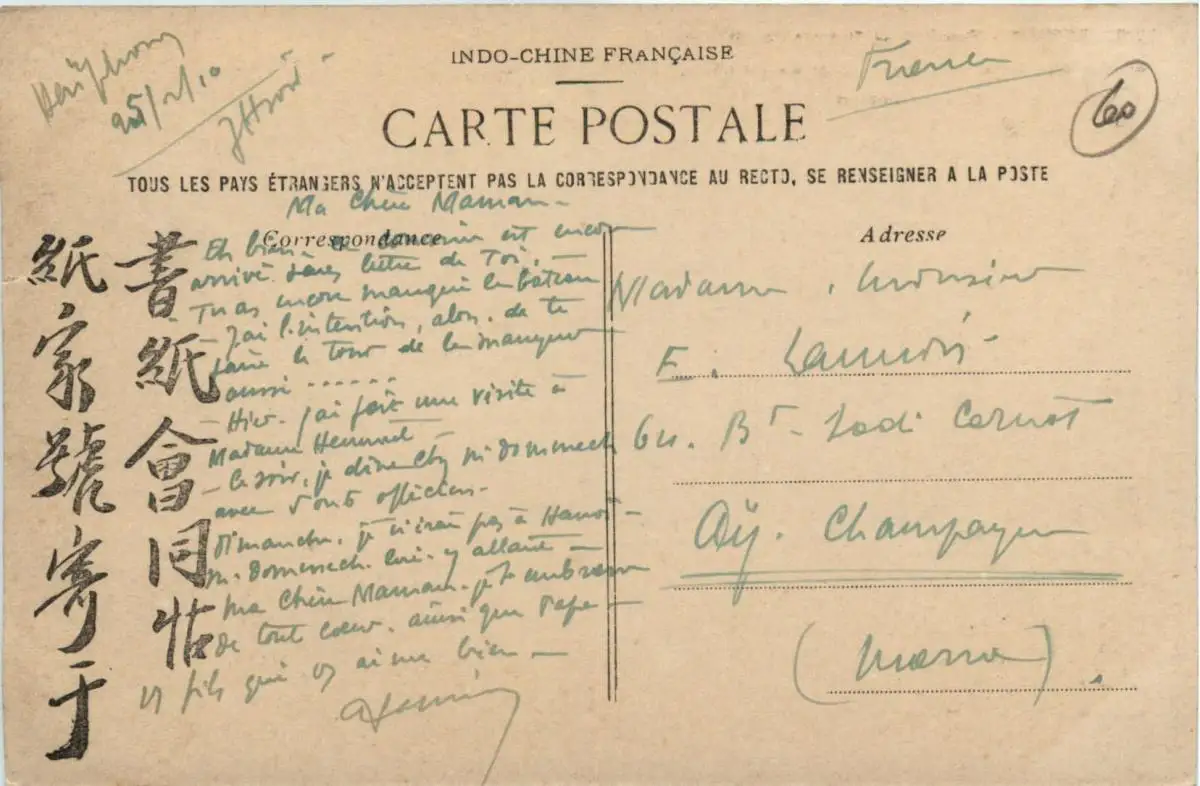 Haïphong
25/2/10
INDO-CHINE FRANÇAISE
France
60
CARTE POSTALE
TOUS LES PAYS ÉTRANGERS N'ACCEPTENT PAS LA CORRESPONDANCE AU RECTO, SE RENSEIGNER A LA POSTE
Correspondance
Adresse
書紙會同怗
紙家號寄于
Ma Chère Maman -
Eh bien - courrier est encore
arrivé sans lettre de Toi. -
Tu as encore manqué le bateau
- J'ai l'intention, alors, de te
faire le tour de le manquer
aussi ......
- Hier - j'ai fait une visite à
Madame
- Ce soir, je dîne chez M Domenech
avec officiers -
Dimanche, je n'irai pas à Hanoï -
M. Domenech lui - y allant -
Ma Chère Maman - je t'embrasse
de tout coeur - ainsi que Papa -
Vs fils qui vs aime bien -
Madame, Monsieur
E.
Bd Sadi Carnot
Aÿ. Champagne
(Marne).